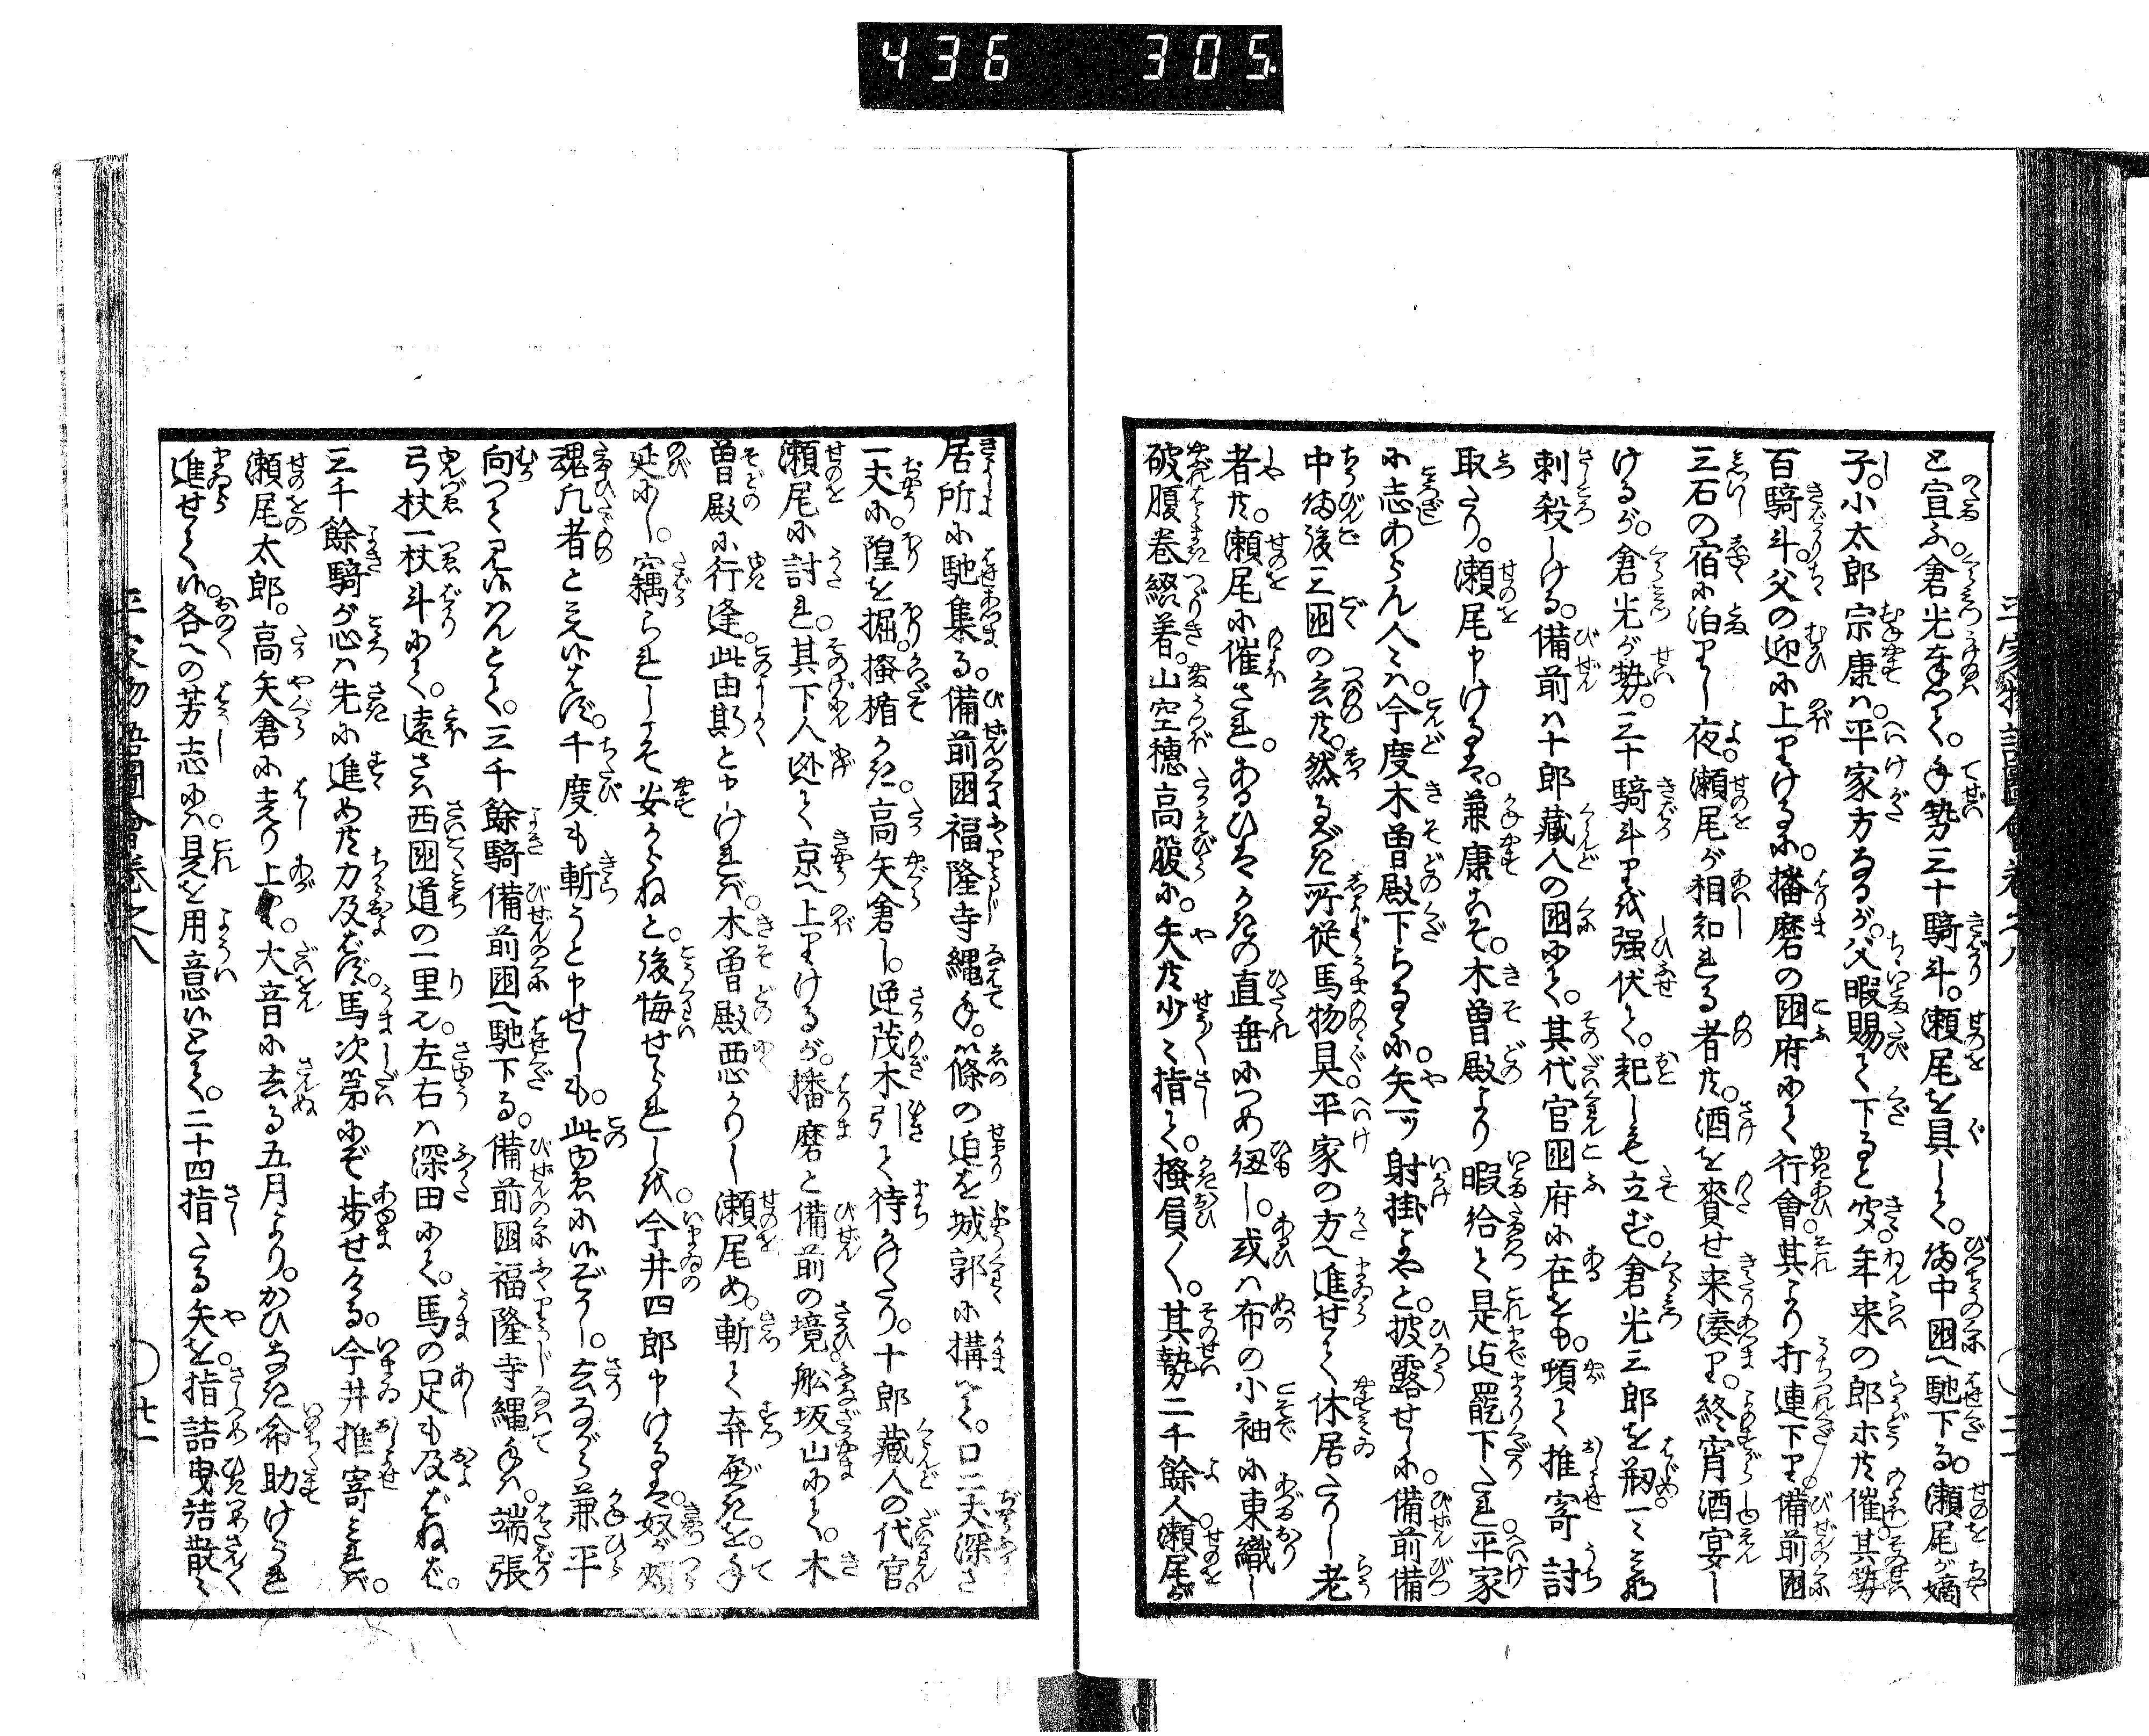 436 305
と宣ふ。倉光奉つて。手勢三十騎斗。瀬尾を具して。備中国へ馳下る。瀬尾が嫡
子。小太郎宗康ハ。平家方なるが。父暇賜て下ると聞。年来の郎等共催。其勢
百騎斗。父の迎に上りけるに。播磨の国府にて行會。其より打連下り。備前国
三石の宿に泊りし夜。瀬尾が相知れる者共。酒を賚せ来湊り。終宵酒宴し
けるが。倉光が勢。三十騎斗りを强伏て。起しも立ず。倉光三郎を初一々に
刺殺しける。備前ハ十郎藏人の国にて。其代官国府に在をも。頓て推寄討
取たり。瀬尾申けるは。兼康こそ。木曽殿より暇給て是迠罷下たれ。平家
に志あらん人々ハ。今度木曽殿下らるゝに。矢一ツ射掛よやと。披露せしに。備前備
中備後三国の共。然るべき所従馬物具平家の方へ進せて休居たりし老
者共。瀬尾に催され。あるひはかきの直垂につめ紐し。或ハ布の小袖に東織し
破腹卷綴着。山空穗高箙に。矢共少々指て。搔負〱。其勢二千餘人瀬尾が
居所に馳集る。備前国福隆寺縄手。篠の迫を城郭に構へて。口二丈深さ
一丈に。隍を掘。搔楯かき。高矢倉し。逆茂木引て待かけたり。十郎藏人の代官。
瀬尾に討れ。其下人迯て京へ上りけるが。播磨と備前の境。舩坂山にて。木
曽殿に行逢。此由斯と申けれバ。木曽殿悪かりし瀬尾め。斬て弃べきを。手
延にし。竊られしこそ安からねと。後悔せられしを。今井四郎申けるは。奴が頬
魂凡者と見えいはず。千度も斬うと申せしも。此為にいぞかし。去ながら兼平
向つて見いハんとて。三千餘騎備前国へ馳下る。備前国福隆寺縄手ハ。端張
弓杖一杖斗にて。遠さハ西国道の一里也。左右ハ深田にて。馬の足も及ばねば。
三千餘騎が心ハ先に進め共力及ばず。馬次第にぞ歩せける。今井推寄見れば。
瀬尾太郎。高矢倉に走り上り。大音に去る五月より。かひなき命助けられ
進せていい。各への芳志にハ。是を用意いとて。二十四指たる矢を。指詰曳詰散々
平家物語圖會卷之八